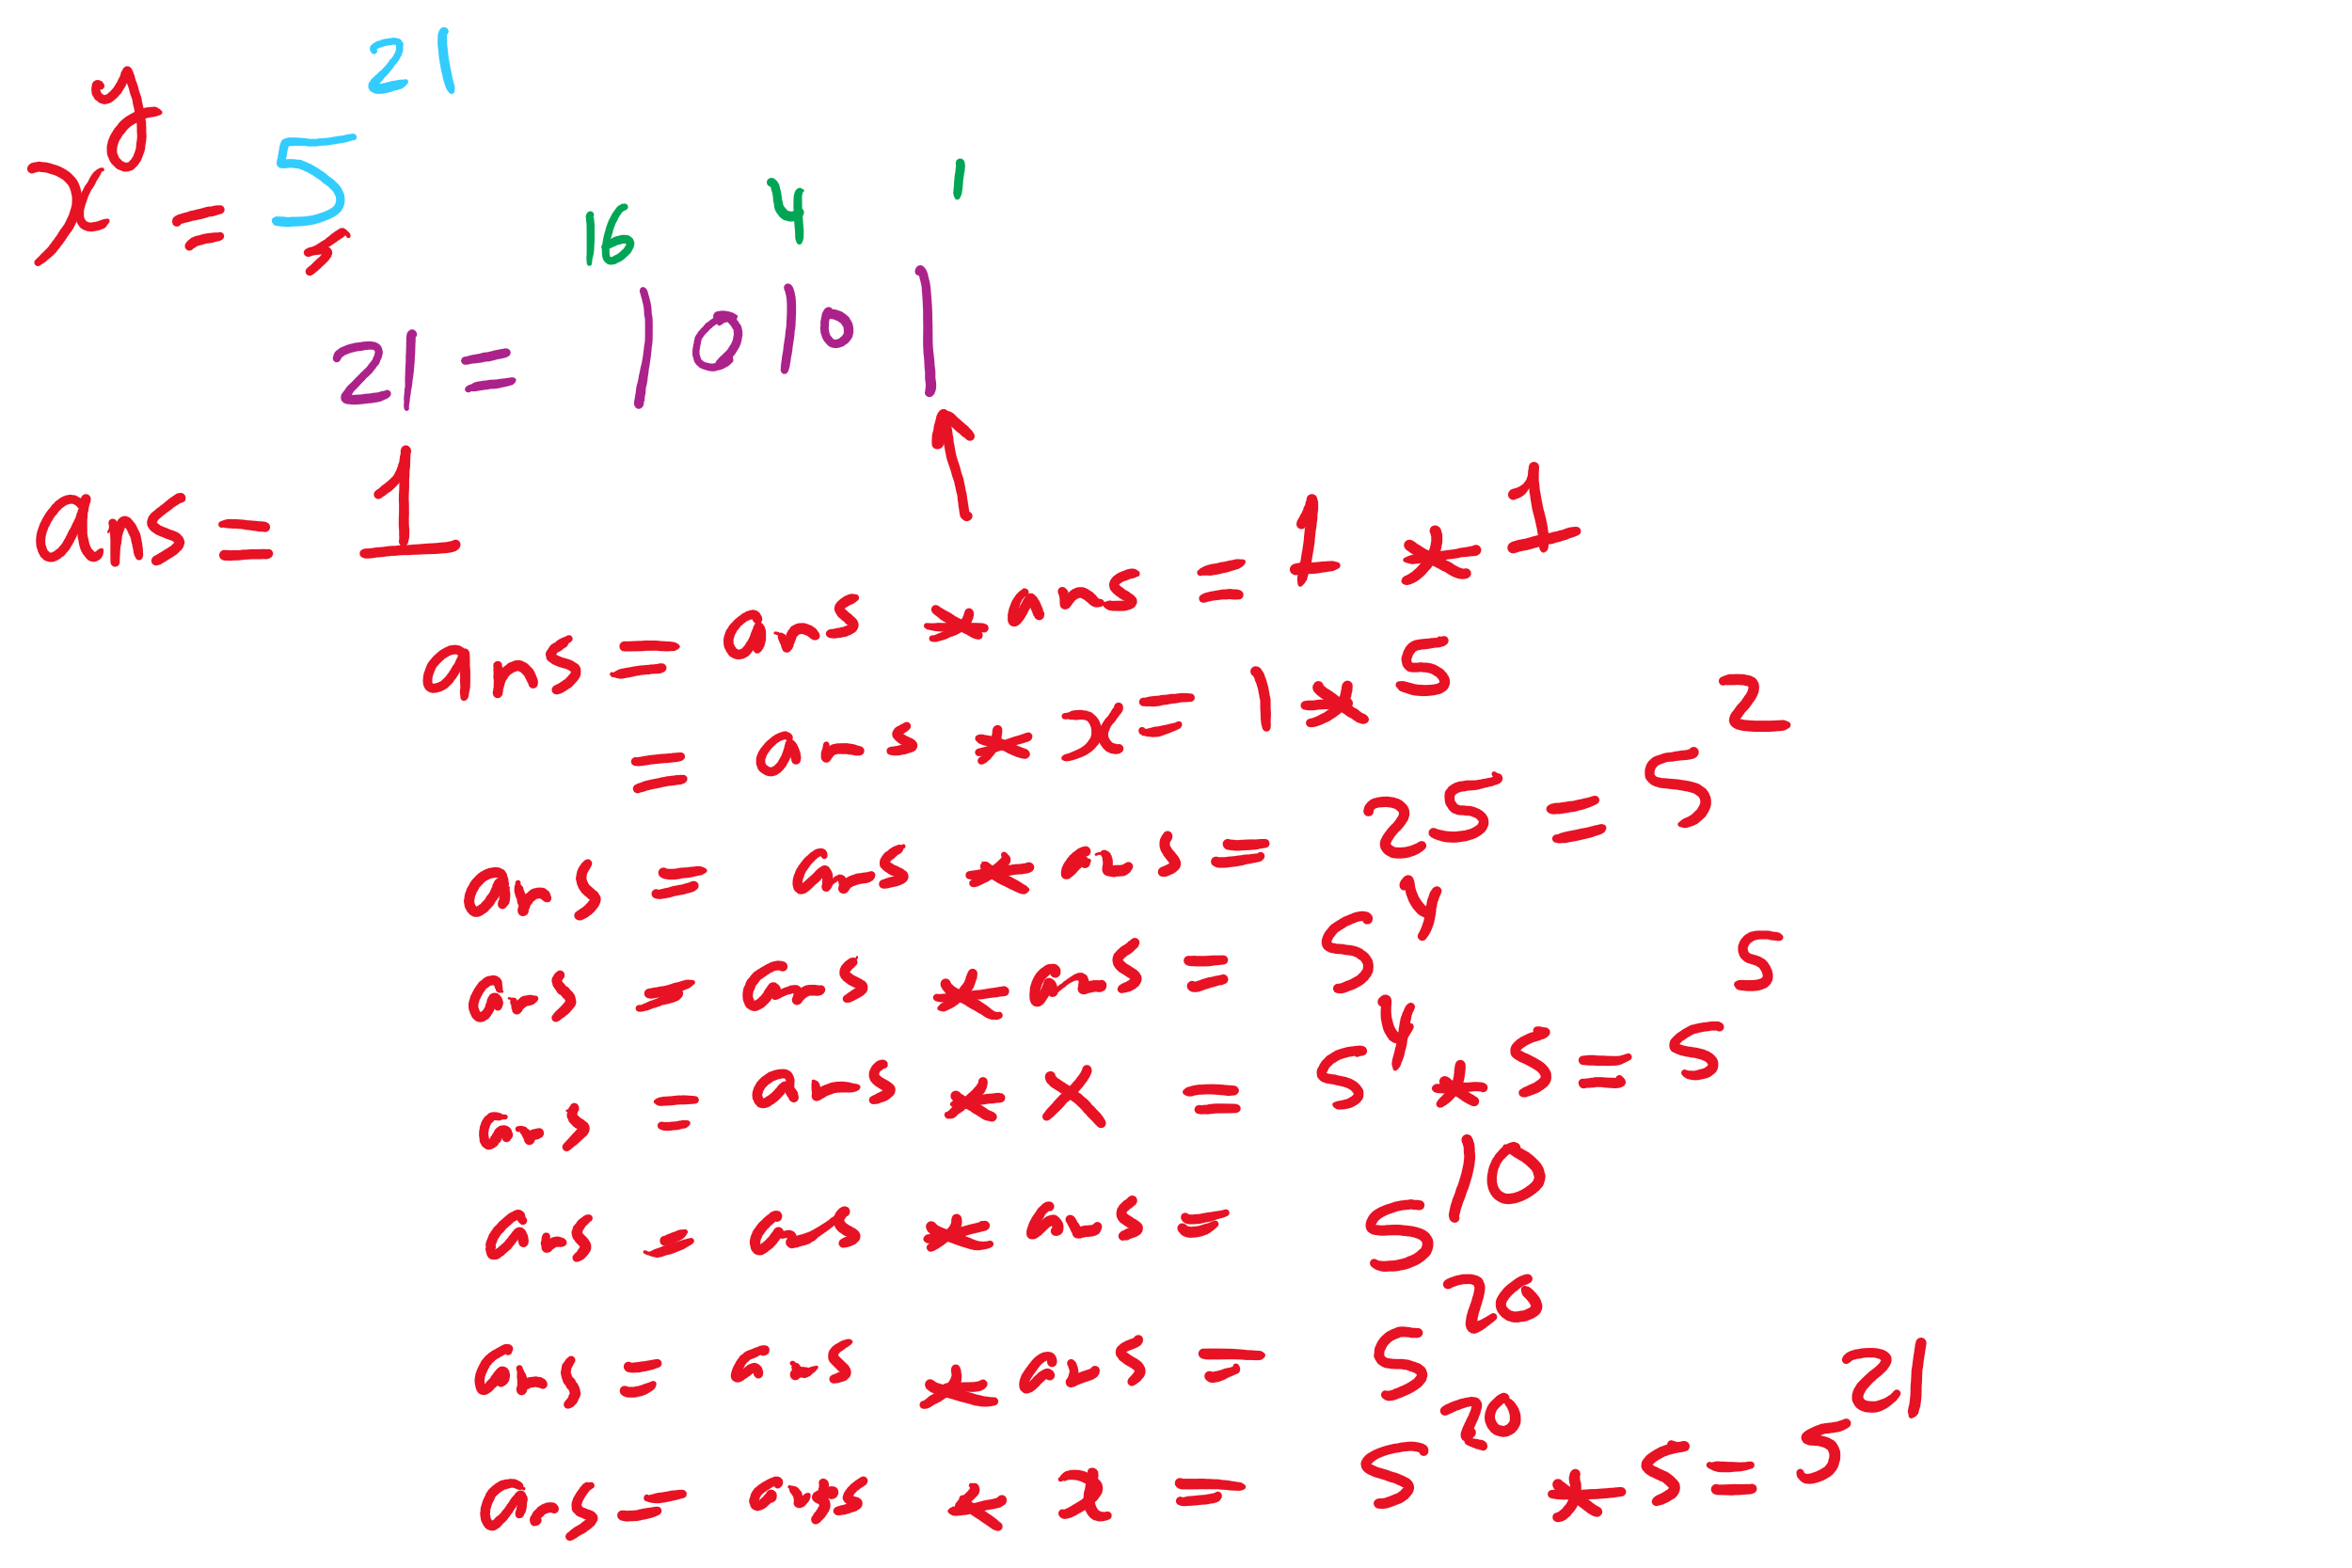 x^y = 5^21
16 4 1
21 = 10101
ans = 1
ans = ans * ans = 1 * 1
= ans * x = 1 * 5
ans = ans * ans = 25 = 5^2
ans = ans * ans = 5^4
ans = ans * x = 5^4 * 5 = 5^5
ans = ans * ans = 5^10
ans = ans * ans = 5^20
ans = ans * x = 5^20 * 5 = 5^21